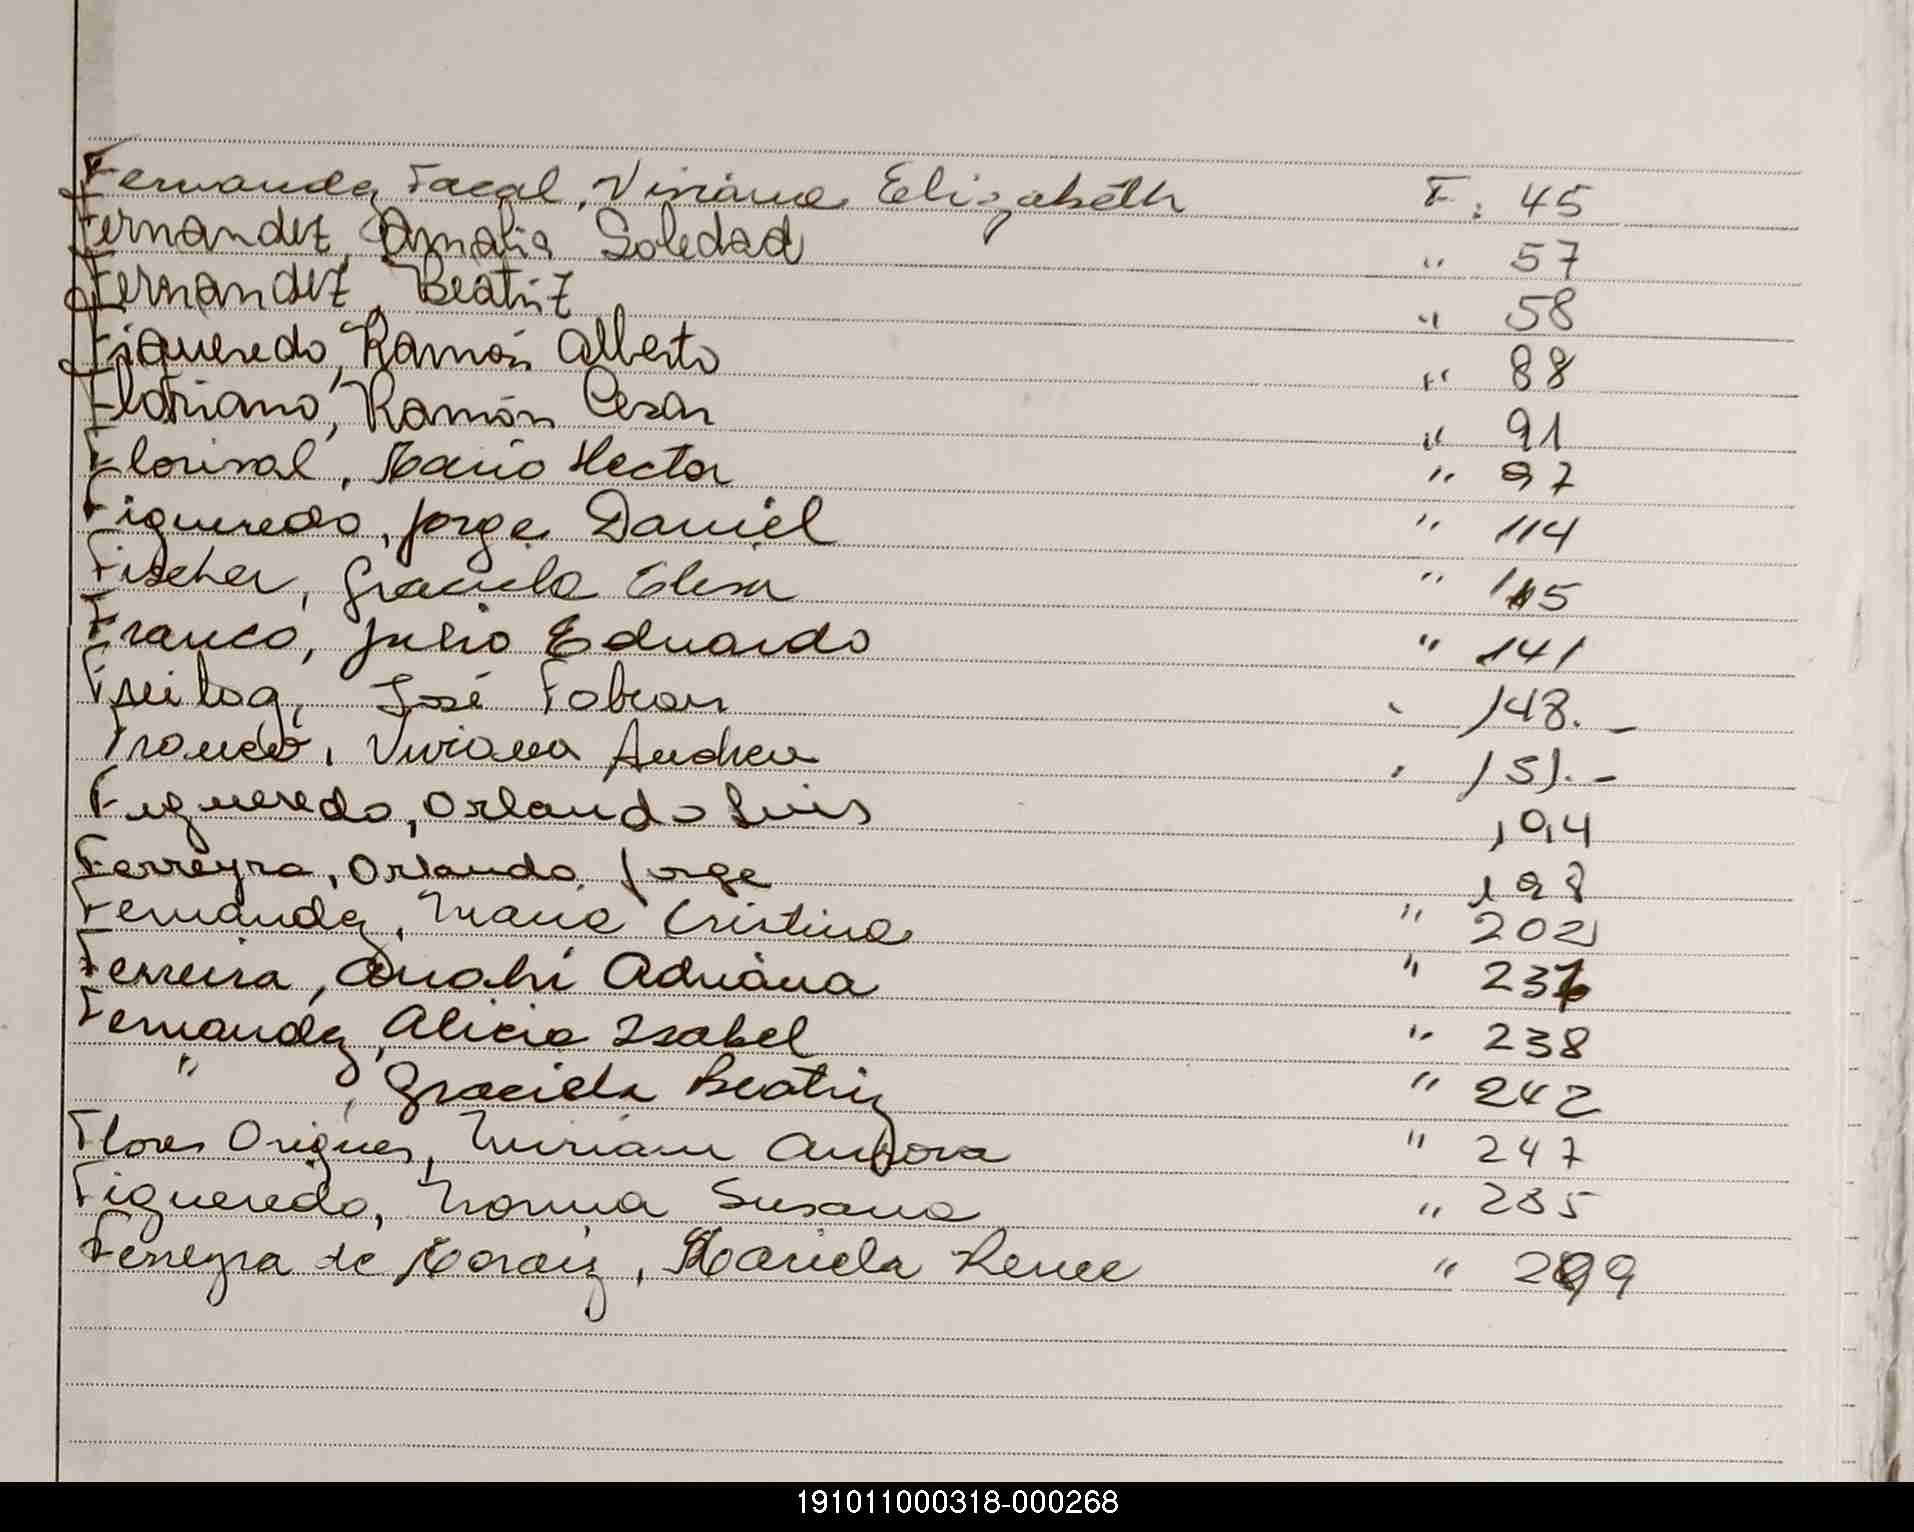 Fernandez Facal, Viviana Elizabeth F. 45
Fernandez, Amalia Soledad " 57
Fernandez, Beatriz " 58
Figueredo, Ramón Alberto " 88
Floriano, Ramón Cesar " 91
Florisal, Mario Hector " 97
Figueredo, Jorge Daniel " 114
Fischer, Graciela Elisa " 115
Franco, Julio Eduardo " 141
Freitag, José Fabian " 148.-
Franco, Viviana Andrea " 151.-
Figueredo, Orlando Luis 194
Ferreyra, Orlando Jorge 198
Fernandez, Maria Cristina " 202
Ferreira, Anahí Adriana "
Fernandez, Alicia Isabel " 238
" , Graciela Beatriz " 242
Flores Origues, Miriam Aurora " 247
Figueredo, Norma Susana " 285
Ferreyra de Moraiz, Mariela Renee " 299
191011000318-000268